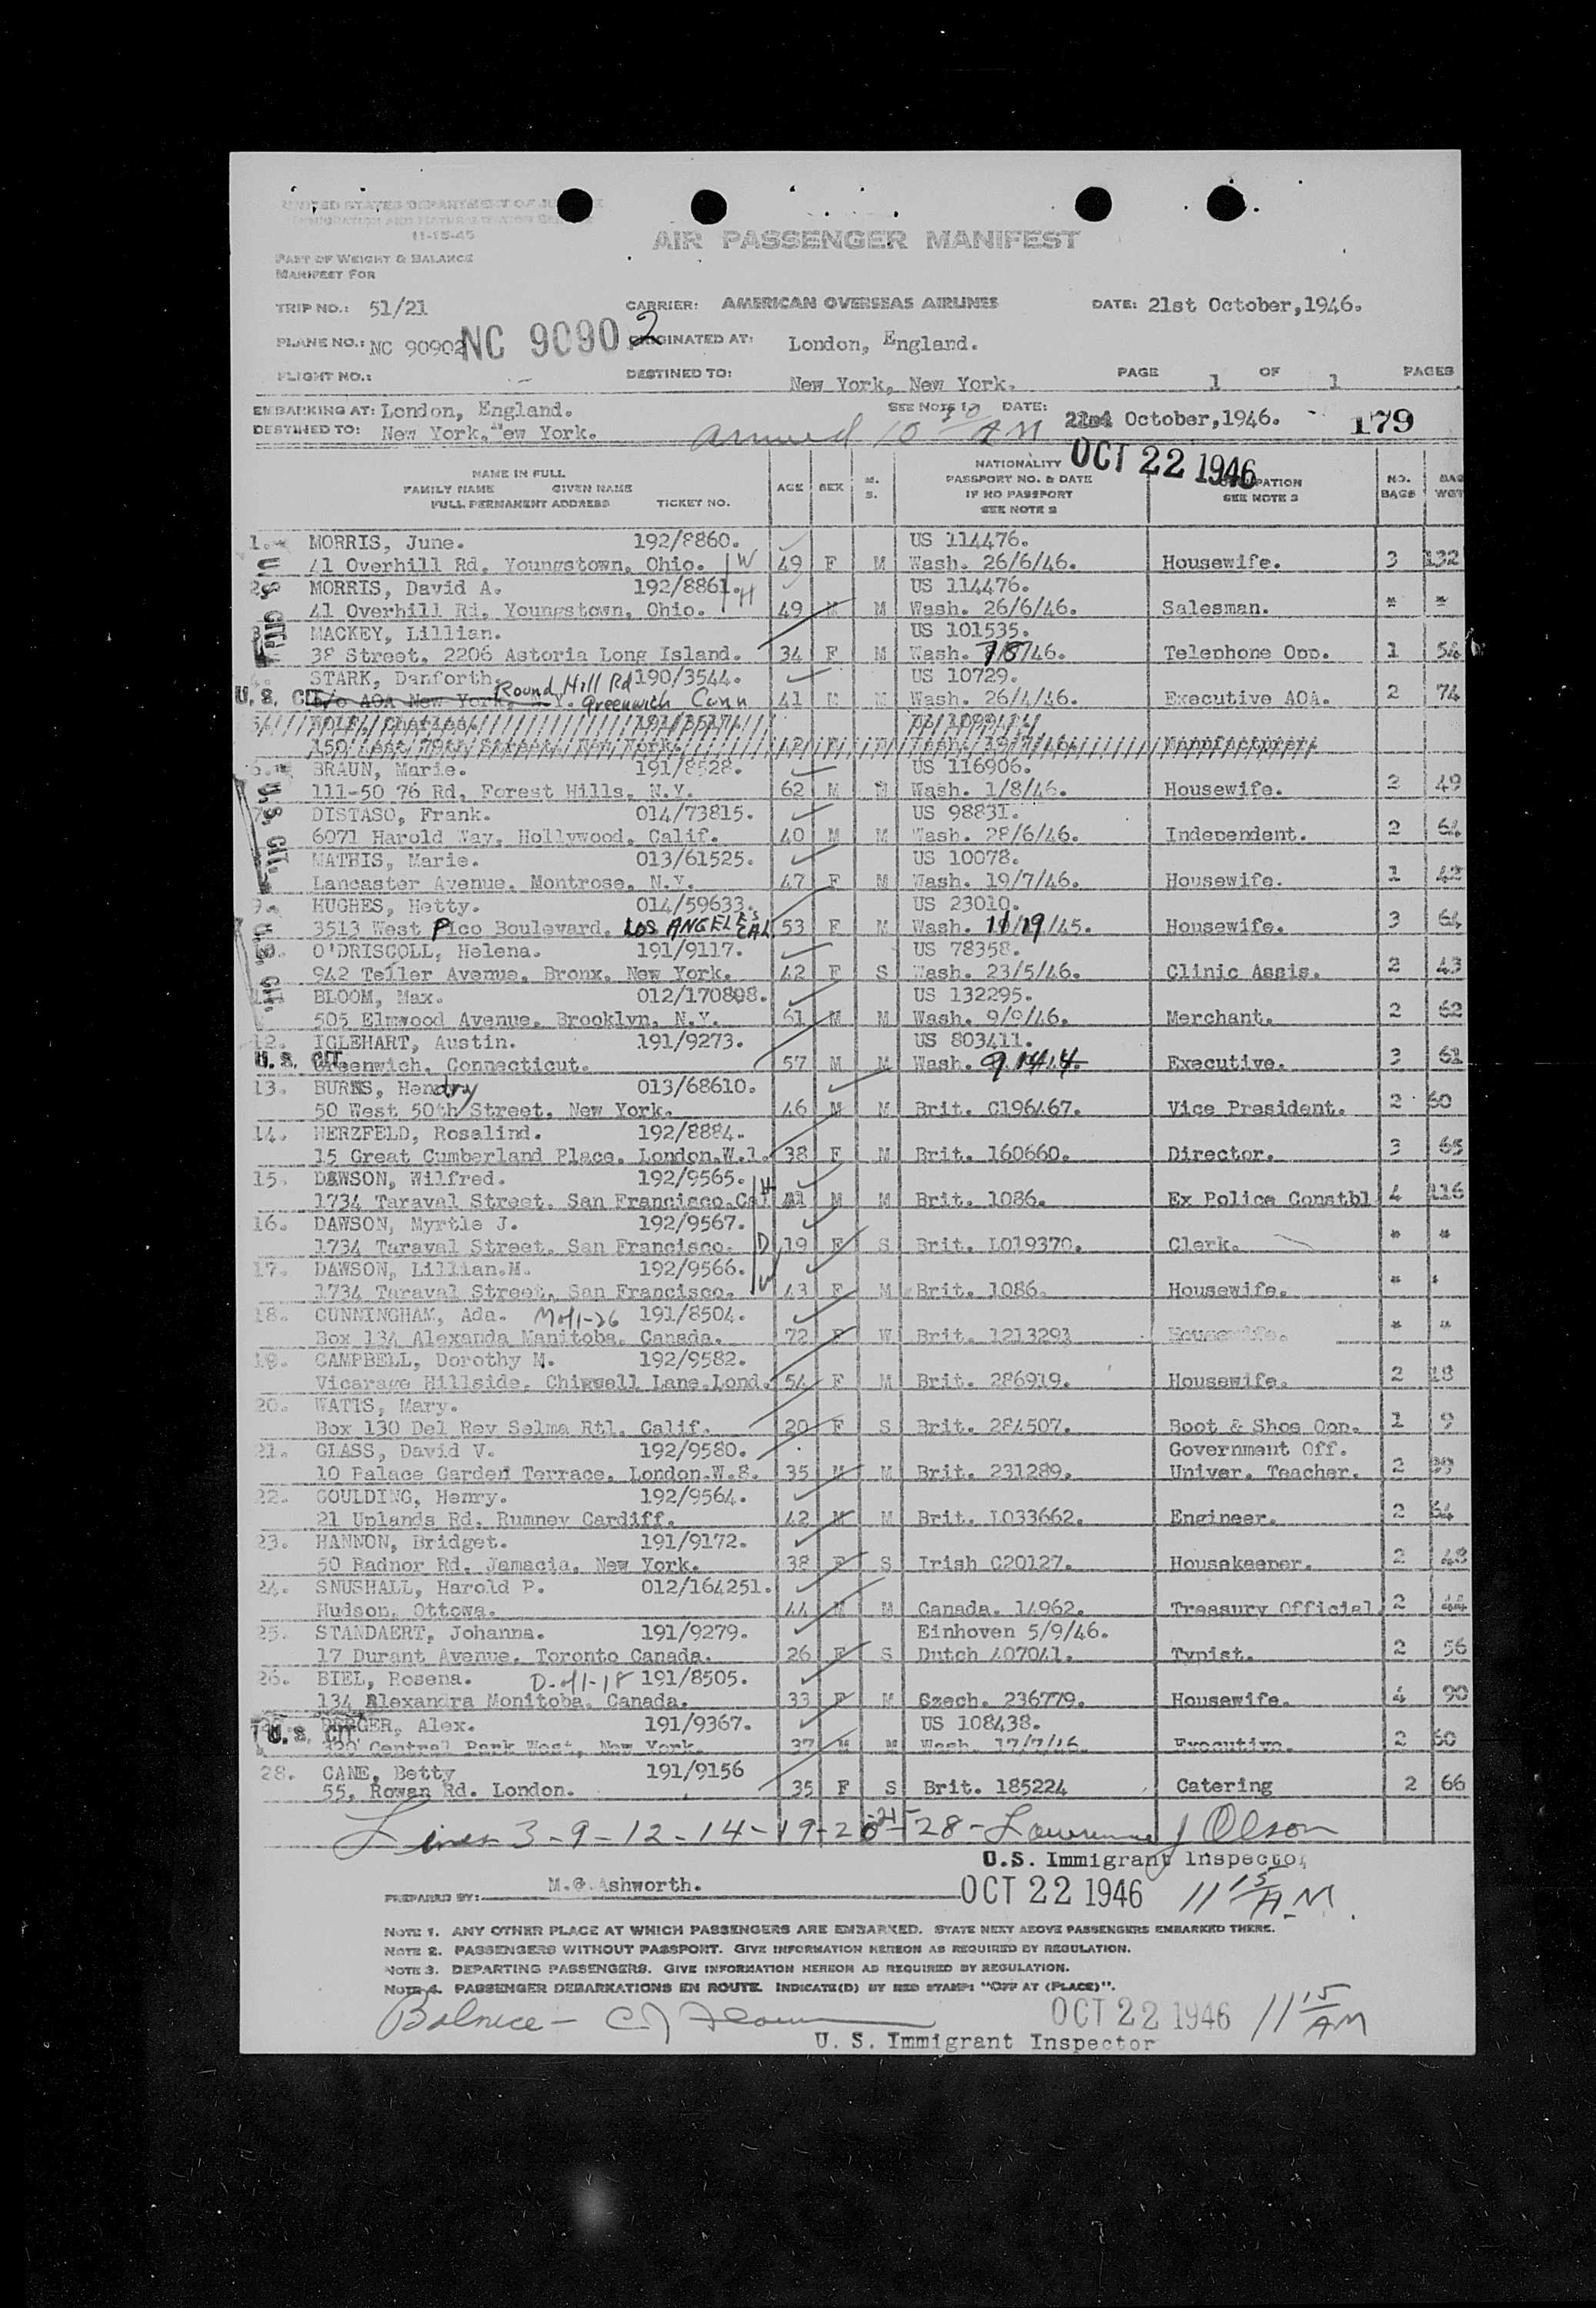 UNITED STATES DEPARTMENT OF JUSTICE
IMMIGRATION AND NATURALIZATION SERVICE
11-15-45
AIR PASSENGER MANIFEST
PART OF WEIGHT & BALANCE
MANIFEST FOR
TRIP NO.: 51/21 CARRIER: AMERICAN OVERSEAS AIRLINES DATE: 21st October,1946.
PLANE NO.: NC 90902 NC 90902 ORIGINATED AT: London, England.
FLIGHT NO.: DESTINED TO: New York, New York. PAGE 1 OF 1 PAGES
EMBARKING AT: London, England. SEE NOTE 1. DATE: October,1946. 179
DESTINED TO: New York, New York. Arrived 10 30 AM
OCT 22 1946
NAME IN FULL
FAMILY NAME GIVEN NAME
FULL PERMANENT ADDRESS TICKET NO. AGE SEX M. S. NATIONALITY PASSPORT NO. & DATE IF NO PASSPORT SEE NOTE 2 OCCUPATION SEE NOTE 3 NO. BAGS BAG WGT
1. MORRIS, June. 192/8860. US 114476.
41 Overhill Rd, Youngstown, Ohio. W 49 F M Wash. 26/6/46. Housewife. 3 132
U. S. CIT.
2. MORRIS, David A. 192/8861. US 114476.
41 Overhill Rd, Youngstown, Ohio. H 49 M M Wash. 26/6/46. Salesman. " "
3. MACKEY, Lillian. US 101535.
38 Street, 2206 Astoria Long Island. 34 F M Wash. 7/8/46. Telephone Opp. 1 54
4. STARK, Danforth. Round Hill Rd 190/3544. US 10729.
U. S. CIT. c/o AOA New York, N.Y. Greenwich Conn 41 M M Wash. 26/4/46. Executive AOA. 2 74
5. Charles.
150 East 79th Street, New York. 42 Manufacturer.
6. BRAUN, Marie. 191/8528. US 116906.
111-50 76 Rd, Forest Hills, N.Y. 62 M M Wash. 1/8/46. Housewife. 2 49
U. S. CIT.
7. DISTASO, Frank. 014/73815. US 98831.
6071 Harold Way, Hollywood, Calif. 40 M M Wash. 28/6/46. Independent. 2 64
MATHIS, Marie. 013/61525. US 10078.
Lancaster Avenue, Montrose, N.Y. 47 F M Wash. 19/7/46. Housewife. 1 42
9. HUGHES, Hetty. 014/59633. US 23010.
3513 West Pico Boulevard. LOS ANGELES CAL 53 F M Wash. 11/19/45. Housewife. 3 64
U. S. CIT.
10. O'DRISCOLL, Helena. 191/9117. US 78358.
942 Teller Avenue, Bronx, New York. 42 F S Wash. 23/5/46. Clinic Assis. 2 43
BLOOM, Max. 012/170808. US 132295.
505 Elmwood Avenue, Brooklyn, N.Y. 61 M M Wash. 9/9/46. Merchant. 2 62
12. IGLEHART, Austin. 191/9273. US 803411.
U. S. CIT. Greenwich, Connecticut. 57 M M Wash. Executive. 3 61
13. BURNS, Hendry 013/68610.
50 West 50th Street, New York. 46 M M Brit. C196467. Vice President. 2 60
14. HERZFELD, Rosalind. 192/8884.
15 Great Cumberland Place, London.W.1. 38 F M Brit. 160660. Director. 3 65
15. DAWSON, Wilfred. 192/9565.
1734 Taraval Street, San Francisco.Cal. H 41 M M Brit. 1086. Ex Police Constbl 4 116
16. DAWSON, Myrtle J. 192/9567.
1734 Taraval Street, San Francisco. D 19 F S Brit. L019370. Clerk. " "
17. DAWSON, Lillian.M. 192/9566.
1734 Taraval Street, San Francisco. W 43 F M Brit. 1086. Housewife. " "
18. CUNNINGHAM, Ada. M of 1-26 191/8504.
Box 134 Alexanda Manitoba, Canada. 72 F W Brit. 1213293 Housewife. " "
19. CAMPBELL, Dorothy M. 192/9582.
Vicarage Hillside, Chigwell Lane.Lond. 54 F M Brit. 286919. Housewife. 2 18
20. WATTS, Mary.
Box 130 Del Rey Selma Rt1, Calif. 20 F S Brit. 284507. Boot & Shoe Opp. 1 9
21. GLASS, David V. 192/9580. Government Off.
10 Palace Garden Terrace, London.W.8. 35 M M Brit. 231289. Univer. Teacher. 2 39
22. GOULDING, Henry. 192/9564.
21 Uplands Rd, Rumney Cardiff. 42 M M Brit. L033662. Engineer. 2 64
23. HANNON, Bridget. 191/9172.
50 Radnor Rd, Jamacia, New York. 38 F S Irish C20127. Housekeeper. 2 48
24. SNUSHALL, Harold P. 012/164251.
Hudson, Ottowa. 44 M M Canada. 14962. Treasury Official. 2 44
25. STANDAERT, Johanna. 191/9279. Einhoven 5/9/46.
17 Durant Avenue, Toronto Canada. 26 F S Dutch 407041. Typist. 2 56
26. BIEL, Rosena. D-of 1-18 191/8505.
134 Alexandra Monitoba, Canada. 33 F M Szech. 236779. Housewife. 4 90
U. S. CIT BERGER, Alex. 191/9367. US 108438.
320 Central Park West, New York. 37 M M Wash. 17/7/46. Executive. 2 60
28. CANE, Betty 191/9156
55, Rowan Rd. London. 35 F S Brit. 185224 Catering 2 66
Lines 3-9-12-14-19-20-21-28- Lawrence J Olson
U.S. Immigrant Inspector
PREPARED BY: M.G.Ashworth. OCT 22 1946 11 15 AM
NOTE 1. ANY OTHER PLACE AT WHICH PASSENGERS ARE EMBARKED. STATE NEXT ABOVE PASSENGERS EMBARKED THERE.
NOTE 2. PASSENGERS WITHOUT PASSPORT. GIVE INFORMATION HEREON AS REQUIRED BY REGULATION.
NOTE 3. DEPARTING PASSENGERS. GIVE INFORMATION HEREON AS REQUIRED BY REGULATION.
NOTE 4. PASSENGER DEBARKATIONS EN ROUTE. INDICATE(D) BY RED STAMP: "OFF AT (PLACE)".
Balance - OCT 22 1946 11 15 AM
U. S. Immigrant Inspector